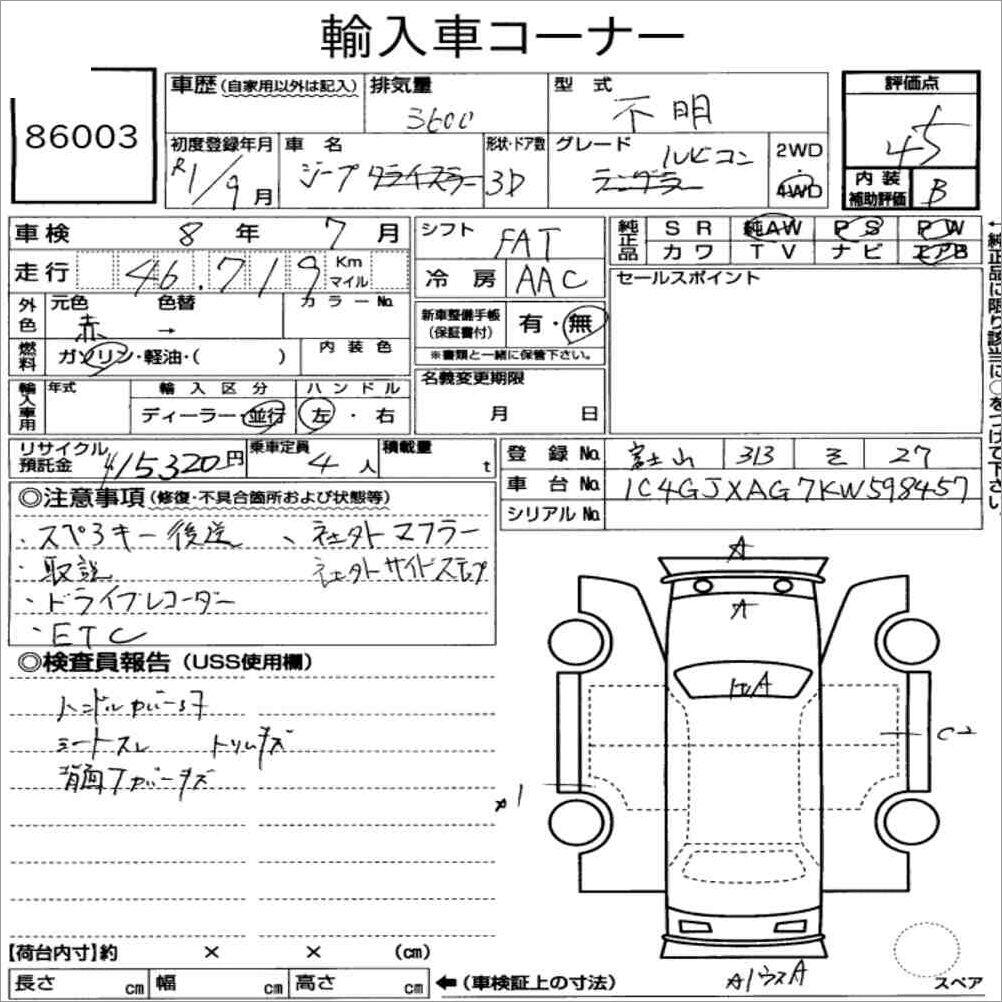 輸入車コーナー
86003
車歴 (自家用以外は記入) 排気量 型式 評価点
3600 不明 45
初度登録年月 車名 形状・ドア数 グレード 2WD
R1/9月 ジープ 3D ルビコン 4WD 内装補助評価 B
車検 8年 7月
シフト FAT
純正品 SR 純AW PS PW
カワ TV ナビ エアB
走行 46.719 Km マイル
冷房 AAC
セールスポイント
外色 元色 色替 カラーNo.
赤 →
新車整備手帳(保証書付) 有・無
燃料 ガソリン・軽油・( ) 内装色
※書類と一緒に保管下さい。
輸入車用 年式 輸入区分 ハンドル
ディーラー・並行 左・右
名義変更期限
月 日
リサイクル預託金 ¥15320円 乗車定員 4人 積載量 t
登録No. 富士山 313 そ 27
車台No. 1C4GJXAG7KW598457
シリアルNo.
◎注意事項 (修復・不具合箇所および状態等)
・スペアキー後送 、社外マフラー
・取説 社外サイドステップ
・ドライブレコーダー
・ETC
◎検査員報告 (USS使用欄)
ハンドルカバースチ
シートスレ トリムキズ
背面タイヤカバーキズ
A
A
A
C2
A
【荷台内寸】約 × × (cm)
長さ cm 幅 cm 高さ cm ←(車検証上の寸法)
スペア
←純正品に限り該当に○をつけて下さい